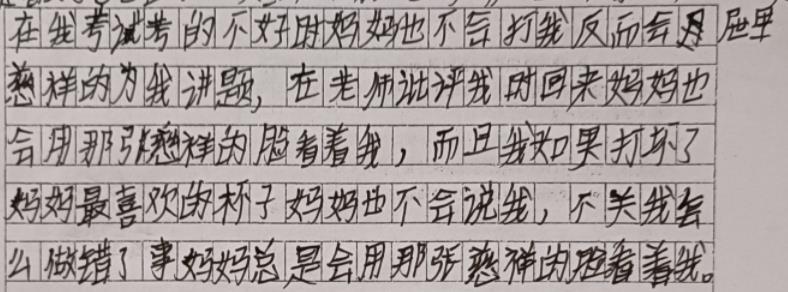 在我考试考的不好时妈妈也不会打我反而会
慈祥的为我讲题，在老师批评我时回来妈妈也
会用那张慈祥的脸看着我，而且我如果打坏了
妈妈最喜欢的杯子妈妈也不会说我，不关我怎
么做错了事妈妈总是会用那张慈祥的脸看着我。